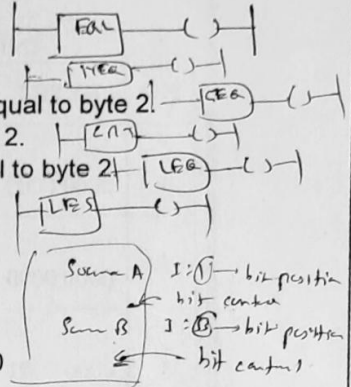 EQL
NEQ
qual to byte 2. GEQ
2. LIM
l to byte 2 LEQ
LES
Source A I:1 → bit position
bit content
Source B I: → bit position
bit content
)